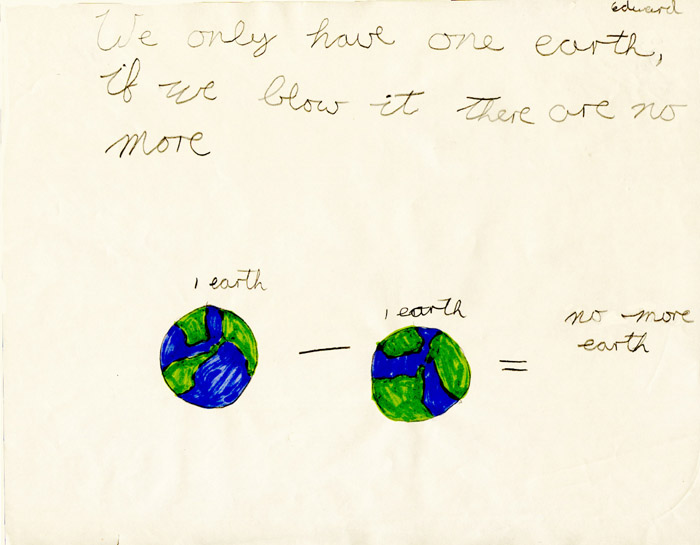 edward
We only have one earth,
If we blow it there are no
more
1 earth
1 earth
no more
earth
—
=